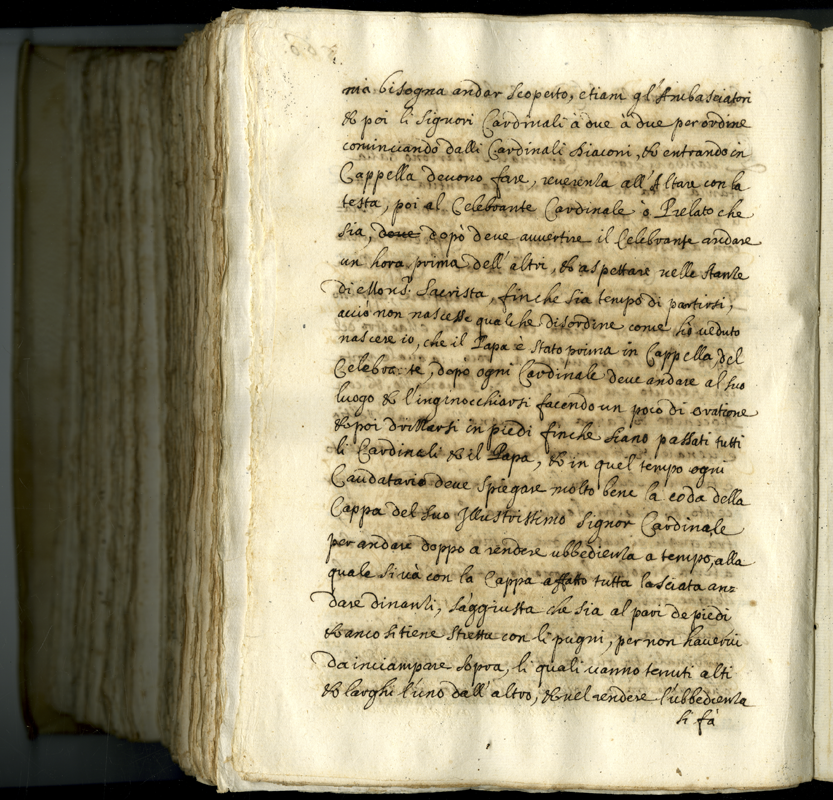 mà bisogna andar scoperto, etiam gl'Ambasciatori
& poi li Signori Cardinali à due à due per ordine
cominciando dalli Cardinali Diaconi, & entrando in
Cappella devono fare, reverenza all'Altare con la
testa, poi al Celebrante Cardinale ò Prelato che
sia, dove dopò deve auvertire il Celebrante andare
un hora prima dell'altri, & aspettare nelle stanze
di Mons.r Sacrista, finche sia tempo di partirsi,
acciò non nascesse qualche disordine come hò veduto
nascere io, che il Papa è stato prima in Cappella, del
Celebrante, dopò ogni Cardinale deve andare al suo
luogo & l'inginocchiarsi facendo un poco di oratione
& poi drizzarsi in piedi finche siano passati tutti
li Cardinali & il Papa, & in quel tempo ogni
Caudatario deve spiegare molto bene la coda della
Cappa del suo Illustrissimo Signor Cardinale
per andare doppo a rendere ubbedienza a tempo, alla
quale si và con la Cappa affatto tutta lasciata an=
dare dinanzi, s'aggiusta che sia al pari de piedi
& anco si tiene stretta con li pugni, per non havervi
da inciampare sopra, li quali vanno tenuti alti
& larghi l'uno dall'altro, & nel rendere l'ubbedienza
si fà